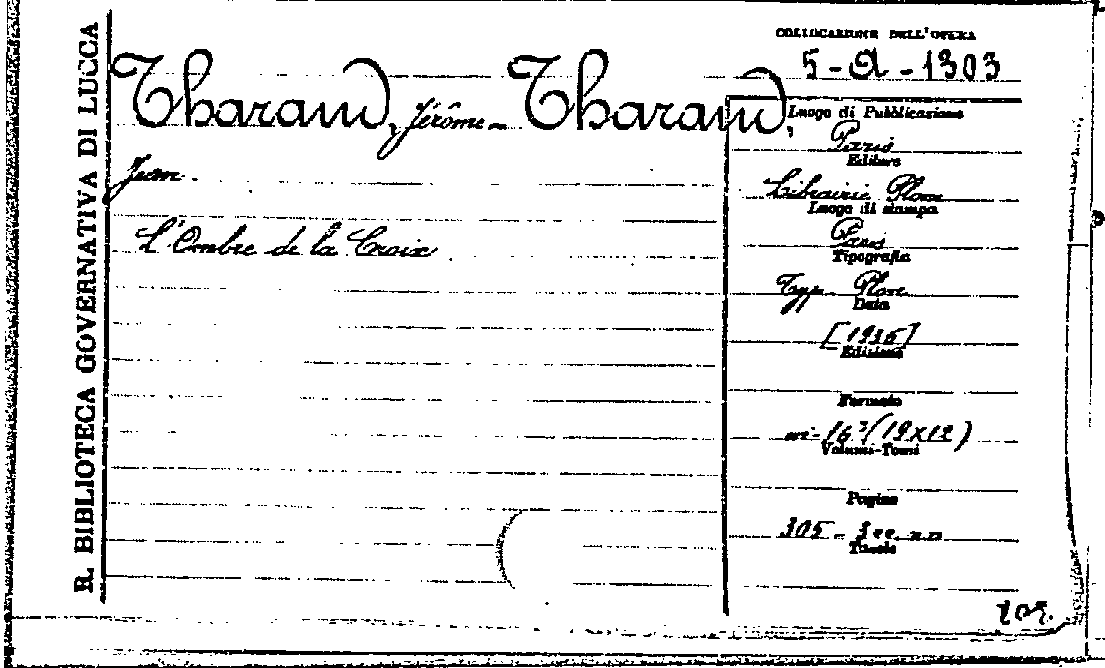 R. BIBLIOTECA GOVERNATIVA DI LUCCA
COLLOCAZIONE DELL'OPERA
5-A-1303
Tharaud, Jérôme - Tharaud,
Jean.
L'Ombre de la Croix
Luogo di Pubblicazione
Paris
Editore
Librairie Plon
Luogo di stampa
Paris
Tipografia
Typ. Plon
Data
Edizione
Formato
in-16° (19x12)
Volumi-Tomi
Pagine
305 - 3 cc. nn
Tavole